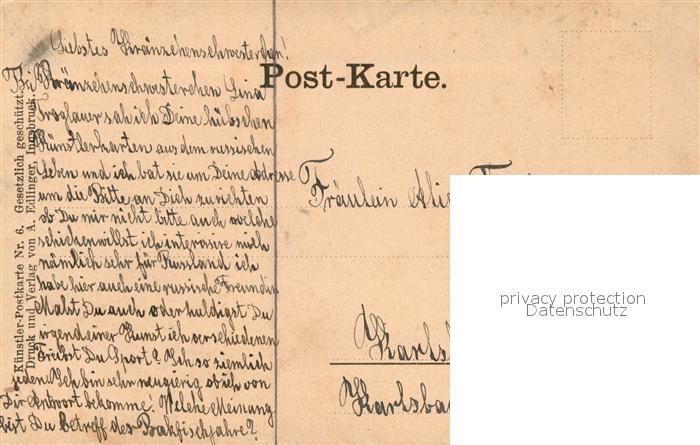 Liebstes Kränzchenschwesterchen!
Bei Kränzchenschwesterchen Lina
Troglauer sah ich Deine hübschen
Künstlerkarten aus dem russischen
Leben und ich bat sie um Deine Adresse
um die Bitte an Dich zu richten
ob Du mir nicht bitte auch welche
schicken willst, ich interesire mich
nämlich sehr für Russland ich
habe hier auch eine russische Freundin
Malst Du auch oder huldigst Du
irgend einer Kunst ich verschiedenen
Treibst Du Sport? Ich so ziemlich
jeden. Ich bin sehr neugierig ob ich von
Dir Antwort bekomme! Welche Meinung
bist Du betreff der Backfischjahre?
Künstler-Postkarte Nr. 6. Gesetzlich geschützt.
Druck und Verlag von A. Edlinger, Innsbruck.
Post-Karte.
Fräulein
Karlsba
privacy protection
Datenschutz